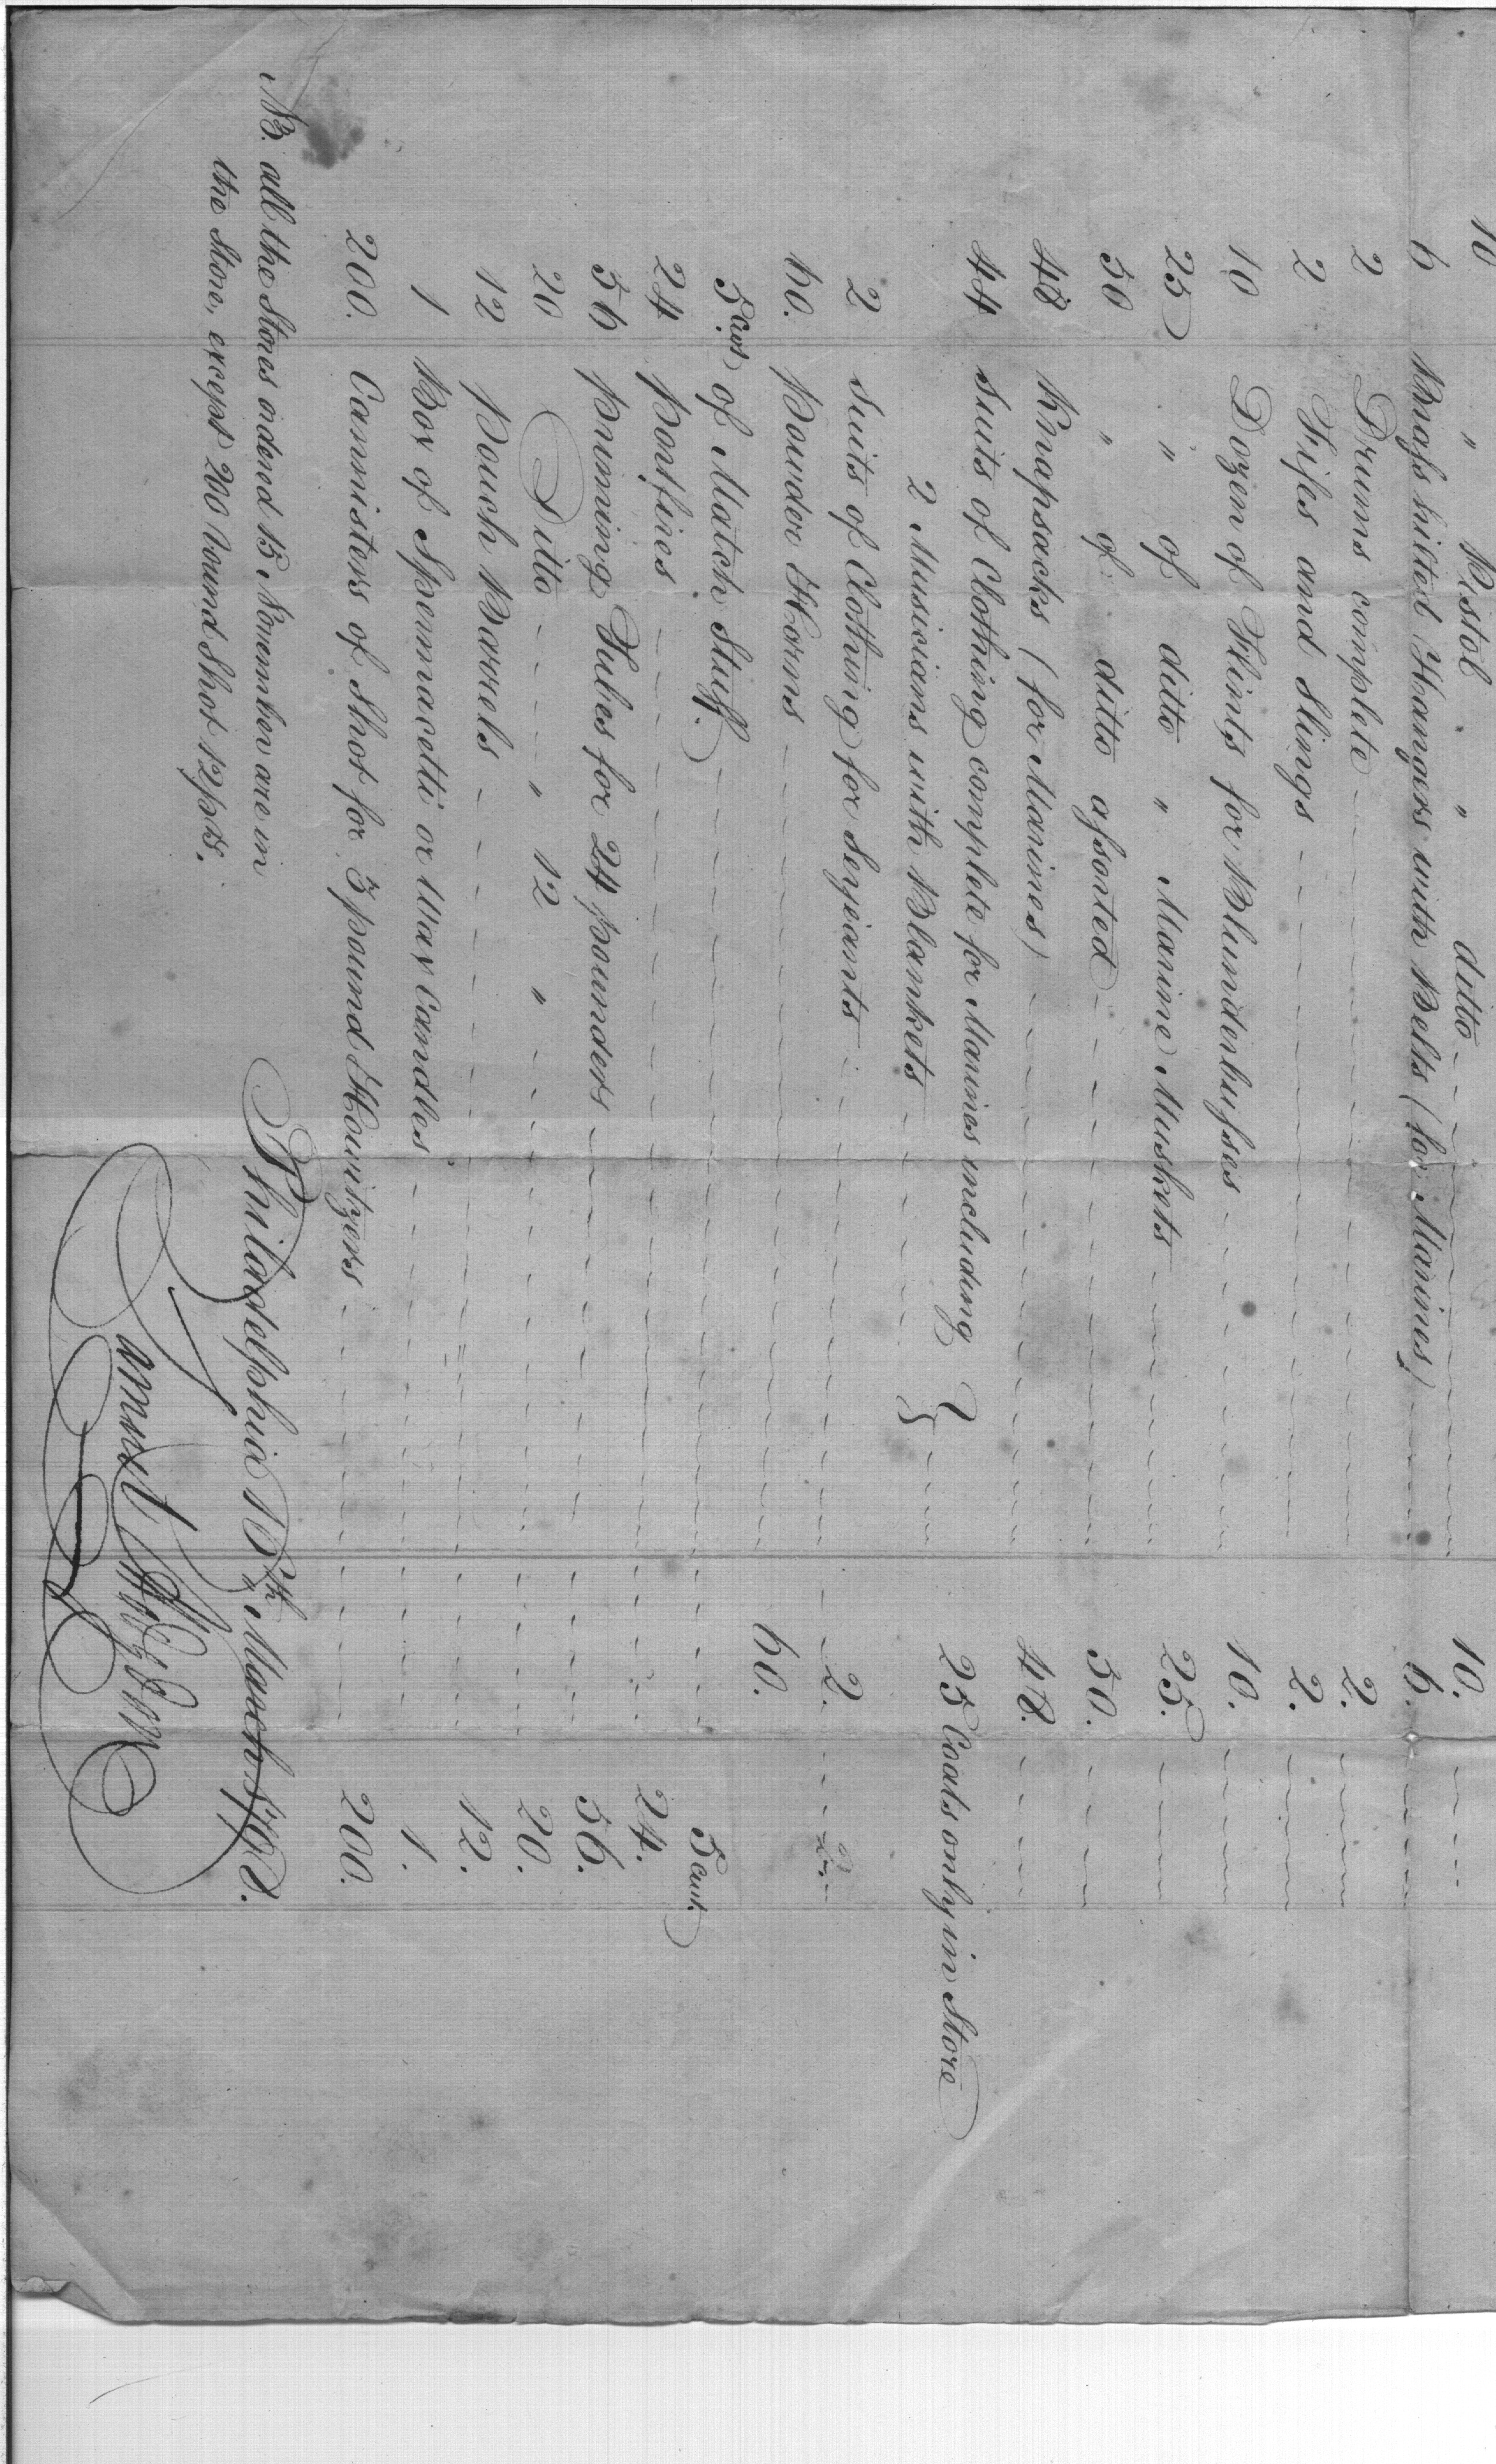 10 " Pistol " ditto 10.
6 Brass hilted Hangers with Belts (for Marines) 6.
2 Drums complete 2.
2 Fifes and Slings 2.
10 Dozen of Flints for Blunderbusses 10.
25 " of ditto " Marine Muskets 25.
50 " of ditto assorted 50.
48 Knapsacks (for Marines) 48.
44 suits of Clothing complete for Marines including }
2 Musicians with Blankets } 25 Coats only in Store
2 suits of Clothing for Serjeants 2. 2.
60. Powder Horns 60.
5 cwt of Match Stuff. 5 cwt.
24 Portfires 24.
56 priming Tubes for 24 pounders 56.
20 Ditto " 12 " 20.
12 Pouch Barrels 12.
1 Box of Spermacetti or Wax Candles 1.
200. Cannisters of Shot for 5 pound Howitzers 200.
NB. all the Stores ordered 15 November are in
the Store, except 200 round Shot 12 pdrs.
Philadelphia 16th March 1798.
Samuel Hodgdon